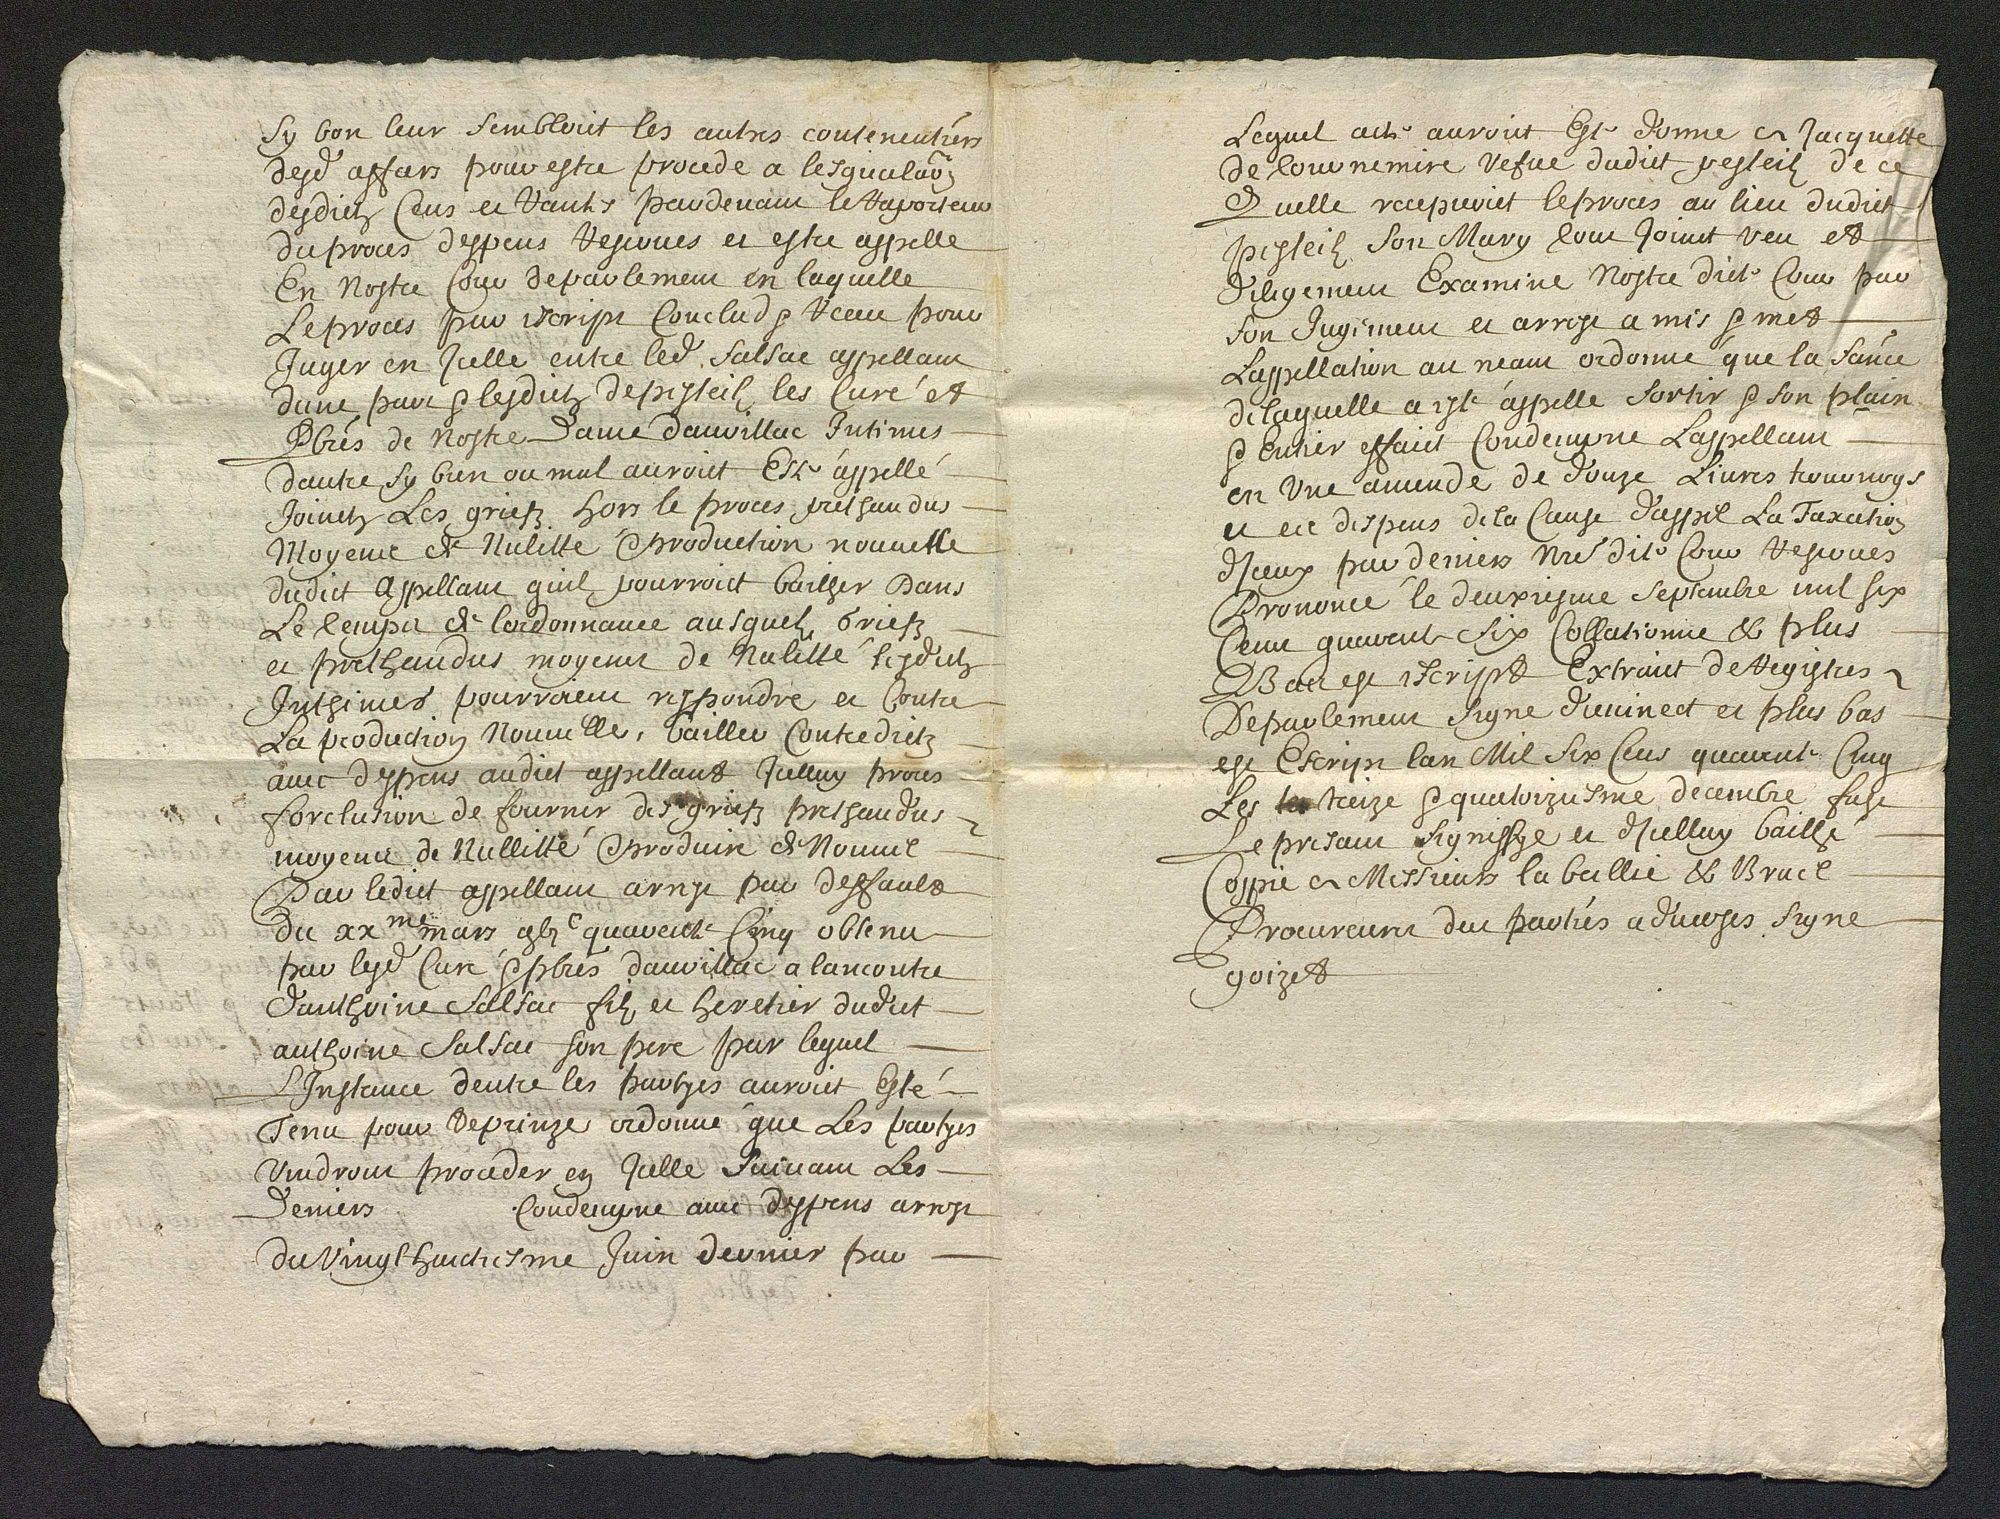 Sy bon leur sembloit les autres contenentiers
desd affars pour estre procede a lesgualaõn
desdictz Cens et Rantes pardevant le Raporteur
du proces despens Reserves et estre appelle
En Nostre Cour de parlement en laquelle
Le proces par escript Conclud & Receu pour
Juger en Jcelle entre led. Salsac appellant
dune part & lesdictz de pesteilz les Curé et
Pbrés de Nostre Dame dauvillac Intimes
dautre Sy bien ou mal auroict Esté appellé
Joinctz Les griefz hors le proces prethandus
Moyens de Nulitté & production nouvelle
dudict Appellant quil pourroict bailher Dans
Le temps de lordonnance ausquelz Griefz
et prethandus moyens de Nulitté lesdictz
Inthimes pourroient respondre et Contre
La production Nouvelle, bailler Contredictz
aux despens audict appellant Jcelluy proces
forclusion de fournir des griefz prethandus
moyens de Nullitté & produire de Nouvel
Par ledict appellant arrest par deffault
du xxme mars vjc quarente Cinq obtenu
par lesd Curé & pbrés dauvillac a lancontre
danthoine Salsac filz et heretier dudict
anthoine Salsac son pere par lequel
L'Instance dentre les partyes auroict Esté
Tenu pour Reprinze ordonné que Les partyes
viendront proceder en Jcelle Suivant Les
Deniers Condempne aux despens arrest
du Vingt huictiesme Juin dernier par
Lequel acte auroict Esté donne a Jacquette
de lournemire vefve dudict pesteilz de ce
Quelle recepvoict le proces au lieu dudict
pesteilz Son Mary tout Joinct veu et
diligement Examine Nostre dicte Cour par
son Jugement et arrest a mis & met
Lappellation au neant ordonné que la Sance
de laquelle a esté appelle Sortir & son plain
& Entier effaict Condempne Lappellant
en Une amende de douze Livres tournoys
et ez despens de la Cause dappel La Taxation
dJceux par deniers Nre dite Cour Reserves
Prononcé le deuxiesme Septembre mil six
Cens quarente Six Collationne & plus
Bas est escript Extraict de Registres
De parlement Signe et plus bas
est Escript lan Mil Six Cens quarente Cinq
Les treize & quatorziesme decembre fust
Le presant Signiffye et dJcelluy baillé
Coppie a Messieurs la ballie & Bruel
Procureurs des parties adverses Signe
goizet